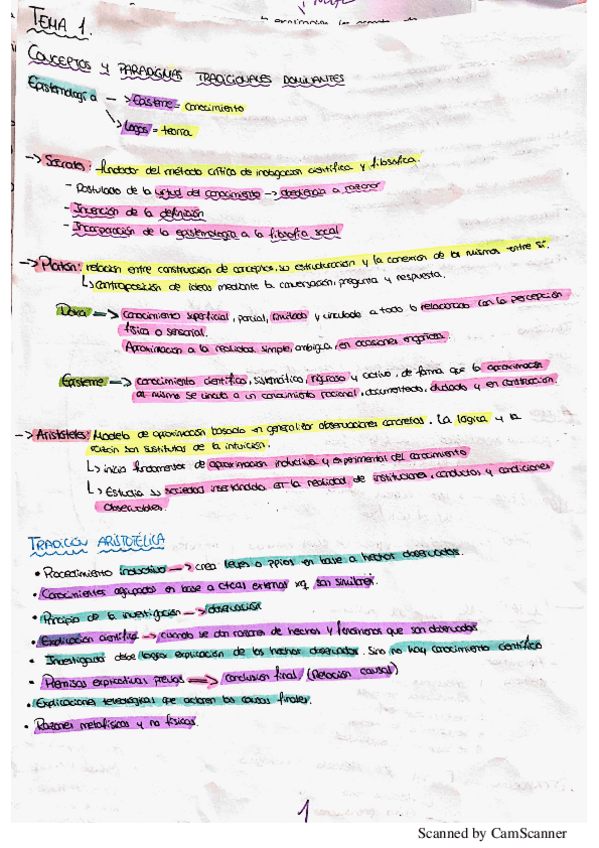 TEMA 1.
CONCEPTOS Y PARADIGMAS TRADICIONALES DOMINANTES
Epistemología -> Episteme = conocimiento
-> Logos = teoría
-> Sócrates: fundador del método crítico de indagación científica y filosófica.
- Postulado de la virtud del conocimiento -> obediencia a razonar
- Invención de la definición
- Incorporación de la epistemología a la filosofía social
-> Platón: relación entre construcción de conceptos, su estructuración y la conexión de los mismos entre sí.
↳ contraposición de ideas mediante la conversación, pregunta y respuesta.
Doxa -> conocimiento superficial, parcial, limitado y vinculado a todo lo relacionado con la percepción
física o sensorial.
Aproximación a la realidad simple, ambigua, en ocasiones engañosa.
Episteme -> conocimiento científico, sistemático, riguroso y activo, de forma que la aproximación
al mismo se vincula a un conocimiento racional, documentado, dudado y en construcción.
-> Aristóteles: Modelo de aproximación basado en generalizar observaciones concretas. La lógica y la
razón son sustitutas de la intuición.
↳ inicia fundamentos de aproximación inductiva y experimental del conocimiento
↳ Estudia su sociedad insertándola en la realidad de instituciones, conductas y condiciones
observables.
TRADICIÓN ARISTOTÉLICA
• Procedimiento inductivo -> crea leyes o ppios en base a hechos observados.
• Conocimientos agrupados en base a ctcas externas xq son similares.
• Principio de la investigación -> observación
• Explicación científica -> cuando se dan razones de hechos y fenómenos que son observados
• Investigador debe lograr explicación de los hechos observados. Sino no hay conocimiento científico
• Premisas explicativas previas -> conclusión final (Relación causal)
• Explicaciones teleológicas que aclaren las causas finales.
• Razones metafísicas y no físicas
1
Scanned by CamScanner